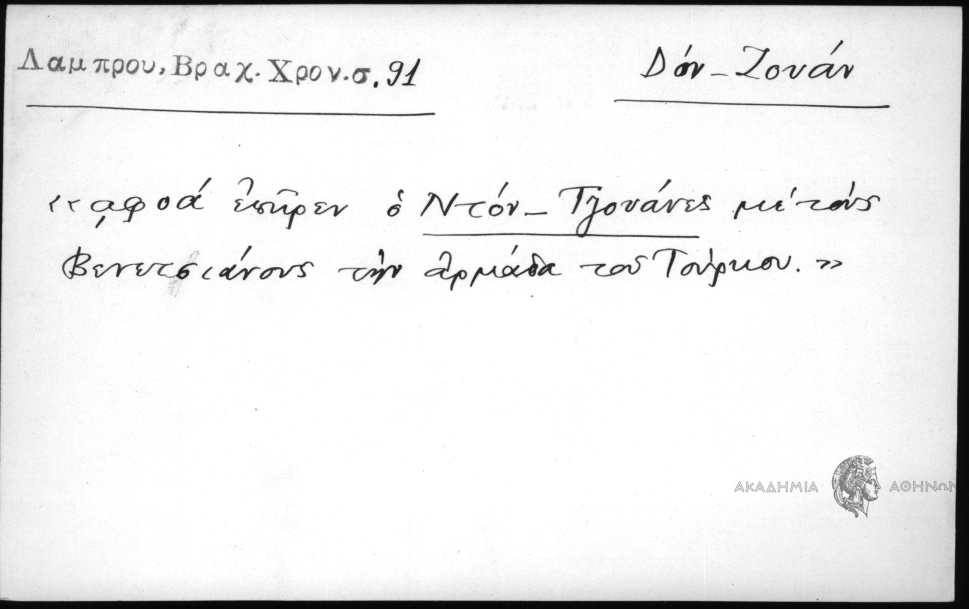 Λαμπρου, Βραχ. Χρον. σ. 91
Δόν-Ζουάν
«αφοά ἐπῆρεν ὁ Ντόν-Τζουάνες μέ τούς
Βενετσιάνους τὴν ἀρμάδα τοῦ Τούρκου.»
ΑΚΑΔΗΜΙΑ ΑΘΗΝΩΝ